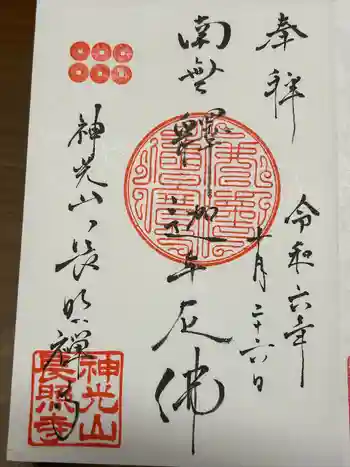 奉拝
令和六年
十月二十六日
南無釋迦牟尼佛
神光山
長照禅寺
神光山
長照寺